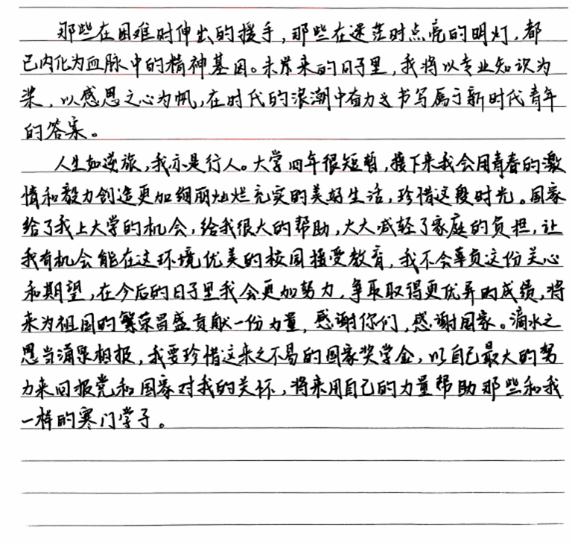 那些在困难时伸出的援手，那些在迷茫时点亮的明灯，都
已内化为血脉中的精神基因。未来的日子里，我将以专业知识为
桨，以感恩之心为帆，在时代的浪潮中奋力书写属于新时代青年
的答案。
人生如逆旅，我亦是行人。大学四年很短暂，接下来我会用青春的激
情和毅力创造更加绚丽灿烂充实的美好生活，珍惜这段时光。国家
给了我上大学的机会，给我很大的帮助，大大减轻了家庭的负担，让
我有机会能在这环境优美的校园接受教育，我不会辜负这份关心
和期望，在今后的日子里我会更加努力，争取取得更优异的成绩，将
来为祖国的繁荣昌盛贡献一份力量，感谢你们，感谢国家。滴水之
恩当涌泉相报，我要珍惜这来之不易的国家奖学金，以自己最大的努
力来回报党和国家对我的关怀，将来用自己的力量帮助那些和我
一样的寒门学子。